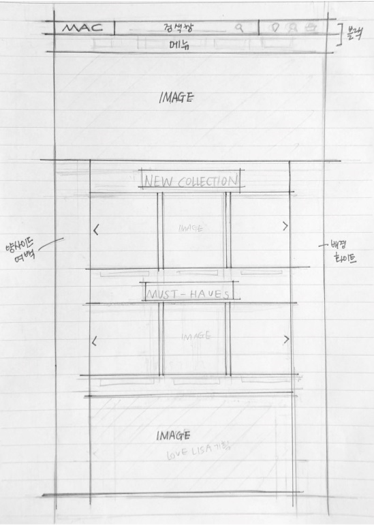 MAC 검색창
메뉴
블랙
IMAGE
NEW COLLECTION
< IMAGE >
양사이드
여백
배경
화이트
MUST-HAVES
< IMAGE >
IMAGE